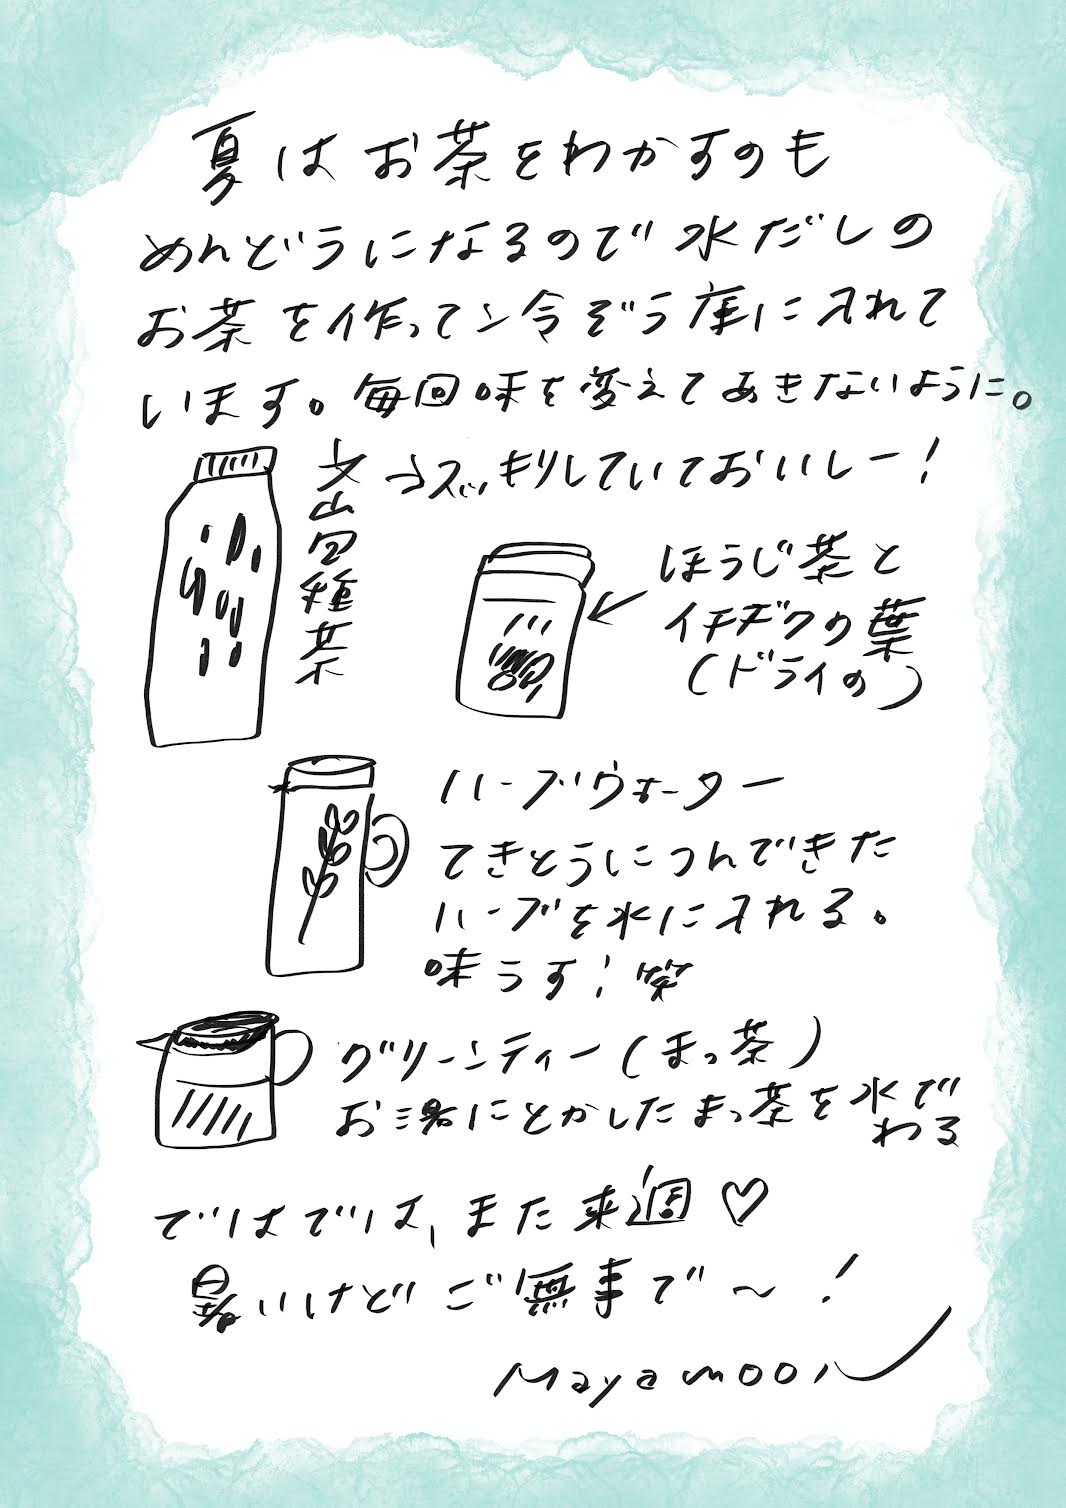 夏はお茶をわかすのも
めんどうになるので水だしの
お茶を作って冷ぞう庫に入れて
います。毎回味を変えてあきないように。
文山包種茶
→スッキリしていておいしー!
ほうじ茶と
イチヂクの葉
(ドライの)
ハーブウォーター
てきとうにつんできた
ハーブを水に入れる。
味うす!笑
グリーンティー(まっ茶)
お湯にとかしたまっ茶を水で
わる
ではでは、また来週♡
暑いけどご無事で〜!
Mayamoon